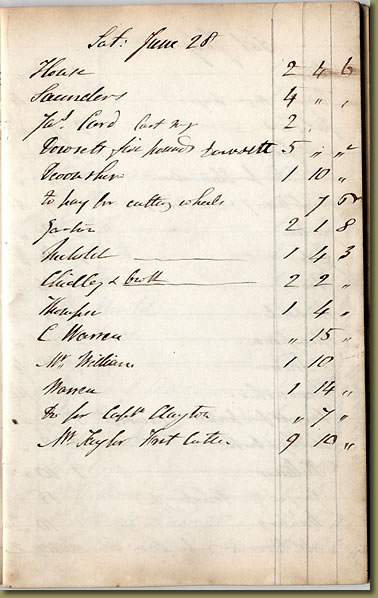 Sat: June 28
House 2 4 6
Saunders 4 " "
Jas. Card last wg 2
Dowsett five pounds Dowsett 5 " "
Devonshire 1 10 "
to pay for cutting wheels 7 6
Easton 2 1 8
1 4 3
Chidley & broth 2 2 "
Thompson 1 4 "
C Warren " 15 "
Mr. William 1 10
Warren 1 14 "
Do for Capt. Clayton " 7 "
Mr Taylor Fret Cutter 9 10 "